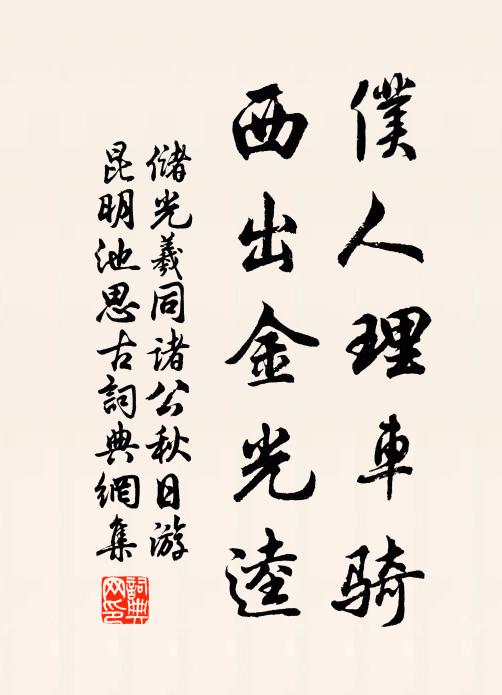 僕人理車騎
西出金光逵
儲光羲同諸公秋日游
昆明池思古詞典網集